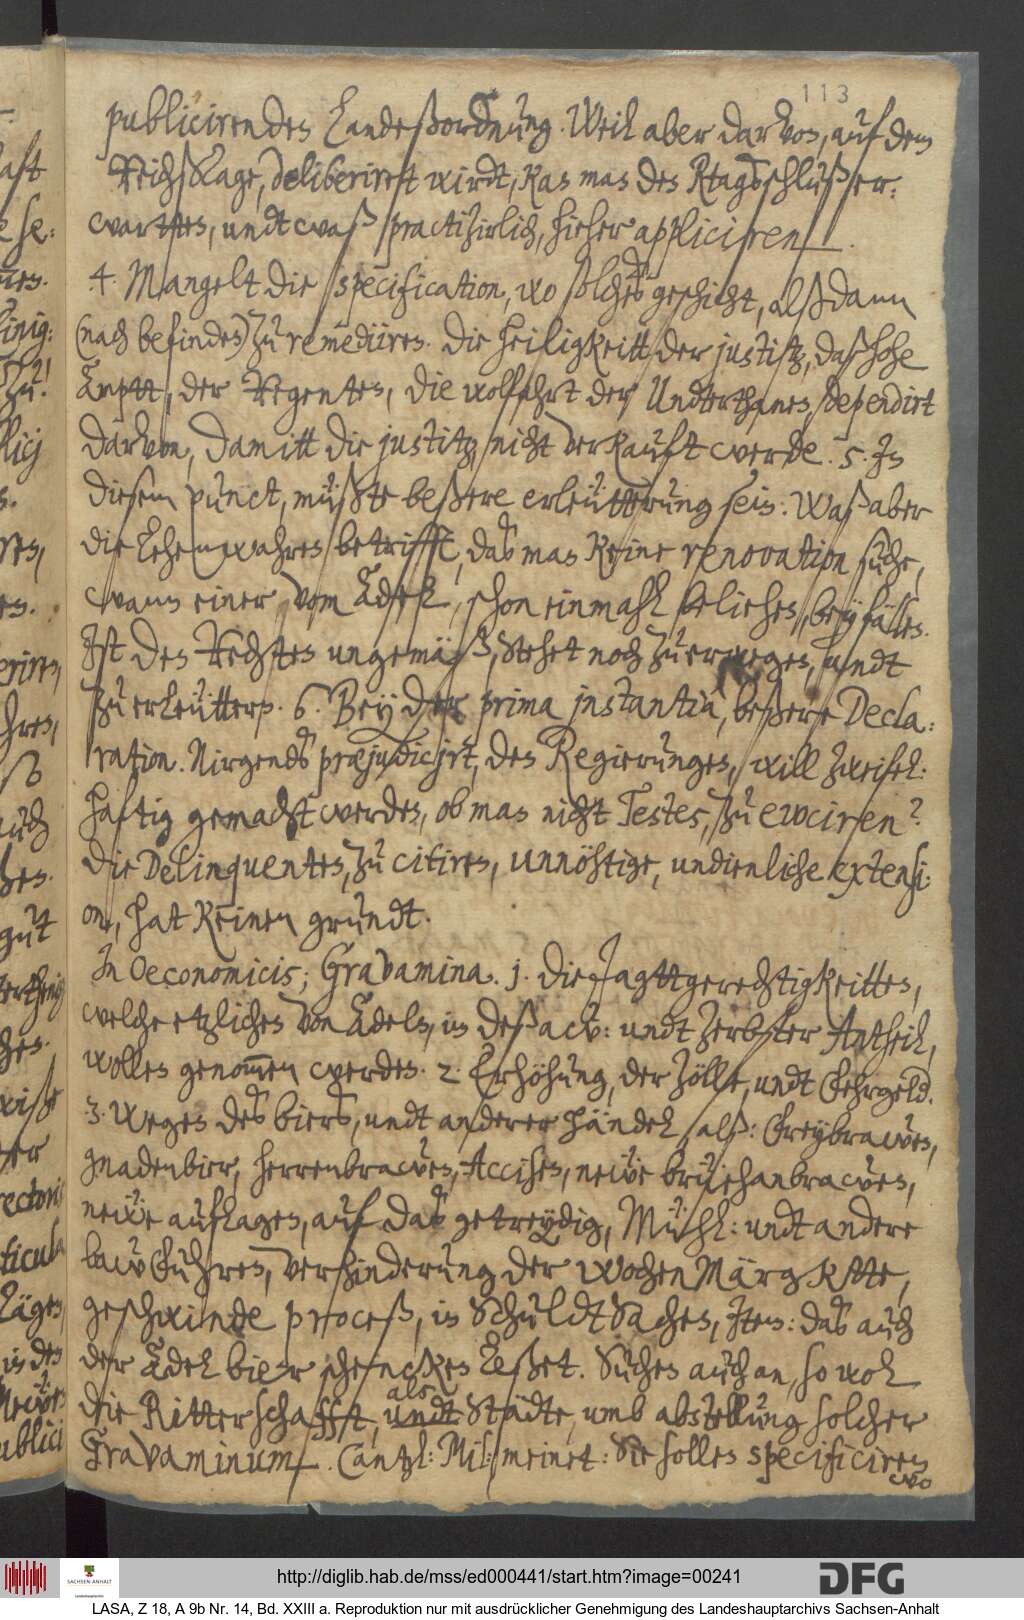 113
publicirenden Landeßordnung. Weil aber darvon, auf dem
ReichsTage, deliberiret wirdt, Kan man des Rtagsschlußer:
warttes, undt waß practizirlich, hieher appliciren.
4. Mangelt die specification, wo solches geschicht, alß dann
(nach befinden) zu remediiren. die heiligkeitt der justitz, daß hohe
Ampt, der Regenten, die wolffahrt der Underthanen, dependirt
darvon, damitt die justitz nicht verkaufft werde. 5. In
diesem punct, müßte beßere erleütterung sein: Waß aber
die Lehenwahren betrifft, das man Keine renovation suche,
wann einer vom Adell, schon einmahl beliehen, bey fällen.
Ist des Rechten ungemäß, stehet noch zu erwegen, undt
zu erleüttern. 6. Bey der prima jnstantia, beßere Decla:
ration. Nirgends præjudicjrt, des Regierungen, will zweifel:
haftig gemacht werden, ob man nicht Testes, zu evociren?
die Delinquenten, zu citiren, unnöhtige, undienliche extensi:
on, hat Keinen grundt.
In Oeconomicis; Gravamina. 1. die Jagttgerechtigkeitten,
welche etzlichen von Adeln, in Deßaw: undt Zerbster Antheil,
wollen genom̄en werden. 2. Erhöhung, der Zölle, undt Fehrgeld.
3. Wegen des biers, undt anderer händel, alß: Freybrawen,
gnadenbier, herrenbrawen, Accisen, newe brüehanbrawen,
newe auflagen, auf das getreydig, Mühl: undt andere
baw Fuhren, verhinderung der wochenMärgKtte,
geschwinde proceß, in SchuldtSachen, Item: das auch
der Adel bier schencken Leßet. Suchen auch an, so wol
die Ritterschafft, undt Städte, umb abstellung solcher
als
Gravaminum. Cantzl: Mil: meinet: Sie sollen specificiren
wo
http://diglib.hab.de/mss/ed000441/start.htm?image=00241
SACHSEN-ANHALT
DFG
LASA, Z 18, A 9b Nr. 14, Bd. XXIII a. Reproduktion nur mit ausdrücklicher Genehmigung des Landeshauptarchivs Sachsen-Anhalt